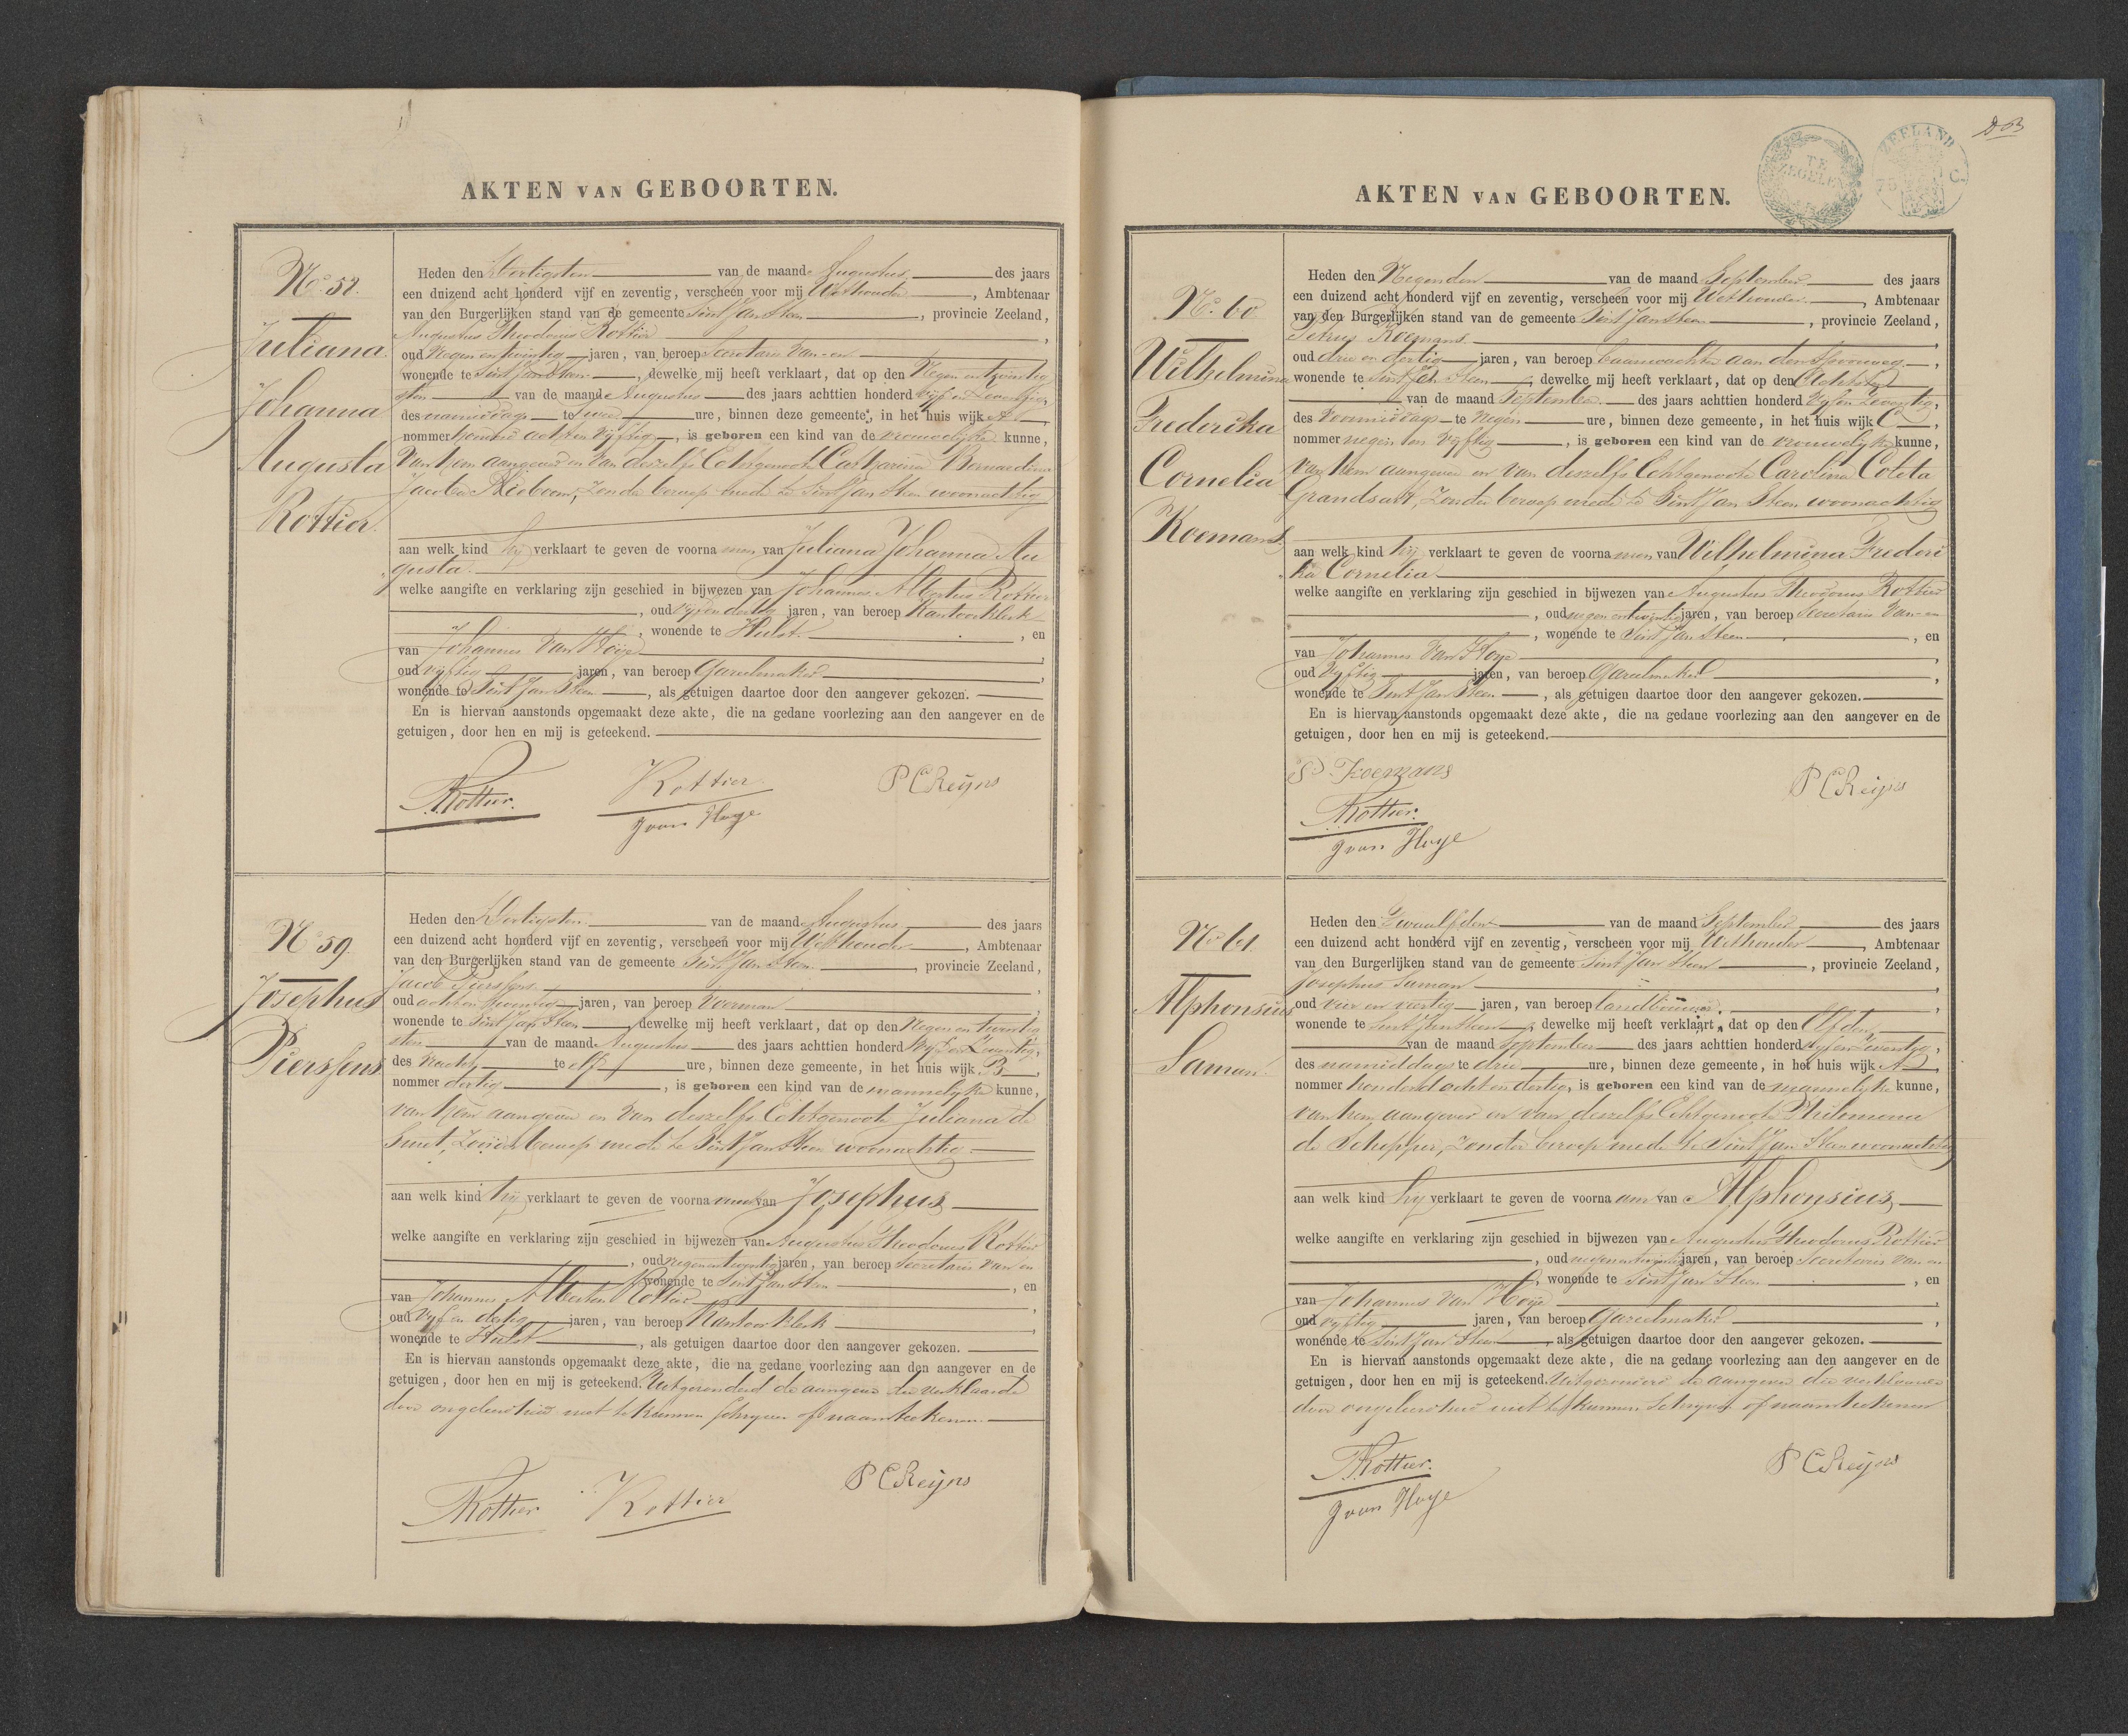 AKTEN VAN GEBOORTEN.
No. 58.
Juliana
Johanna
Augusta
Rottier.
Heden den Dertigsten van de maand Augustus des jaars
een duizend acht honderd vijf en zeventig, verscheen voor mij Wethouder, Ambtenaar
van den Burgerlijken stand van de gemeente Sint Jan Steen, provincie Zeeland,
Augustus Theodorus Rottier,
oud Negen en twintig jaren, van beroep Secretaris van en
wonende te Sint Jan Steen, dewelke mij heeft verklaart, dat op den Negen en twintig
sten van de maand Augustus des jaars achttien honderd vijf en Zeventig,
des namiddags te twee ure, binnen deze gemeente, in het huis wijk A,
nommer honderd acht en vijftig, is geboren een kind van de vrouwelijke kunne,
van hem aangever en van deszelfs Echtgenoote Catharina Bernardina
Jacoba, Zonder beroep mede te Sint Jan Steen woonachtig
aan welk kind hij verklaart te geven de voorna men van Juliana Johanna Au
gusta.
welke aangifte en verklaring zijn geschied in bijwezen van Johannes Albertus Rottier
, oud vijf en dertig jaren, van beroep Kantoorklerk
, wonende te Hulst, en
van Johannes Van Hoije,
oud vijftig jaren, van beroep Gareelmaker,
wonende te Sint Jan Steen, als getuigen daartoe door den aangever gekozen.
En is hiervan aanstonds opgemaakt deze akte, die na gedane voorlezing aan den aangever en de
getuigen, door hen en mij is geteekend.
Rottier. Rottier P C Reijns
J van Hoye
No. 59.
Josephus
Pierssens
Heden den Dertigsten van de maand Augustus des jaars
een duizend acht honderd vijf en zeventig, verscheen voor mij Wethouder, Ambtenaar
van den Burgerlijken stand van de gemeente Sint Jan Steen, provincie Zeeland,
Jacob Pierssens,
oud acht en twintig jaren, van beroep Voerman,
wonende te Sint Jan Steen, dewelke mij heeft verklaart, dat op den Negen en twintig
sten van de maand Augustus des jaars achttien honderd Vijf en Zeventig,
des Nachts te elf ure, binnen deze gemeente, in het huis wijk B,
nommer dertig, is geboren een kind van de mannelijke kunne,
van hem aangever en van deszelfs Echtgenoote Juliana de
Smet, Zonder beroep mede te Sint Jan Steen woonachtig.
aan welk kind hij verklaart te geven de voorna am van Josephus
welke aangifte en verklaring zijn geschied in bijwezen van Augustus Theodorus Rottier
, oud negen en twintig jaren, van beroep Secretaris van en
wonende te Sint Jan Steen, en
van Johannes Albertus Rottier,
oud Vijf en dertig jaren, van beroep Kantoorklerk,
wonende te Hulst, als getuigen daartoe door den aangever gekozen.
En is hiervan aanstonds opgemaakt deze akte, die na gedane voorlezing aan den aangever en de
getuigen, door hen en mij is geteekend. Uitgezonderd de aangever die verklaarde
door ongeleerdheid niet te kunnen schrijven of naamteekenen.
Rottier Rottier P C Reijns
TE
ZEGELEN
ZEELAND
AKTEN VAN GEBOORTEN.
No. 60
Wilhelmina
Frederika
Cornelia
Koemans.
Heden den Negenden van de maand September des jaars
een duizend acht honderd vijf en zeventig, verscheen voor mij Wethouder, Ambtenaar
van den Burgerlijken stand van de gemeente Sint Jan Steen, provincie Zeeland,
Petrus Koemans,
oud drie en dertig jaren, van beroep baanwachter aan den Spoorweg,
wonende te Sint Jan Steen, dewelke mij heeft verklaart, dat op den Achtsten
van de maand September des jaars achttien honderd Vijf en Zeventig,
des Voormiddags te Negen ure, binnen deze gemeente, in het huis wijk C,
nommer negen en vijftig, is geboren een kind van de vrouwelijke kunne,
van hem aangever en van deszelfs Echtgenoote Carolina Coleta
Grandsart, Zonder beroep mede te Sint Jan Steen woonachtig
aan welk kind hij verklaart te geven de voorna men van Wilhelmina Frederi
ka Cornelia
welke aangifte en verklaring zijn geschied in bijwezen van Augustus Theodorus Rottier
, oud negen en twintig jaren, van beroep Secretaris van en
, wonende te Sint Jan Steen, en
van Johannes Van Hoye,
oud Vijftig jaren, van beroep Gareelmaker,
wonende te Sint Jan Steen, als getuigen daartoe door den aangever gekozen.
En is hiervan aanstonds opgemaakt deze akte, die na gedane voorlezing aan den aangever en de
getuigen, door hen en mij is geteekend.
P Koemans P C Reijns
Rottier.
J van Hoye
No. 61
Alphonsius
Saman.
Heden den Twaalfden van de maand September des jaars
een duizend acht honderd vijf en zeventig, verscheen voor mij Wethouder, Ambtenaar
van den Burgerlijken stand van de gemeente Sint Jan Steen, provincie Zeeland,
Josephus Saman,
oud vier en veertig jaren, van beroep landbouwer,
wonende te Sint Jan Steen, dewelke mij heeft verklaart, dat op den Elfden
van de maand September des jaars achttien honderd vijf en Zeventig,
des namiddags te drie ure, binnen deze gemeente, in het huis wijk A,
nommer honderd acht en dertig, is geboren een kind van de mannelijke kunne,
van hem aangever en van deszelfs Echtgenoote Philomena
de Schepper, Zonder beroep mede te Sint Jan Steen woonachtig
aan welk kind hij verklaart te geven de voorna am van Alphonsius
welke aangifte en verklaring zijn geschied in bijwezen van Augustus Theodorus Rottier
, oud negen en twintig jaren, van beroep Secretaris van en
, wonende te Sint Jan Steen, en
van Johannes Van Hoije,
oud vijftig jaren, van beroep Gareelmaker,
wonende te Sint Jan Steen, als getuigen daartoe door den aangever gekozen.
En is hiervan aanstonds opgemaakt deze akte, die na gedane voorlezing aan den aangever en de
getuigen, door hen en mij is geteekend. Uitgezonderd de aangever die verklaarde
door ongeleerdheid niet te kunnen schrijven of naamteekenen
Rottier. P C Reijns
J van Hoye